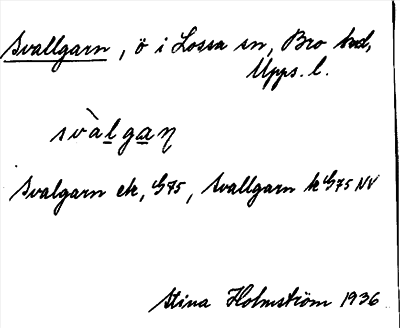 Svallgarn, ö i Lossa sn, Bro hd,
Upps. l.
svàlgaꞃ
Svalgarn ek, 575, Svallgarn k 575 NV
Stina Holmström 1936